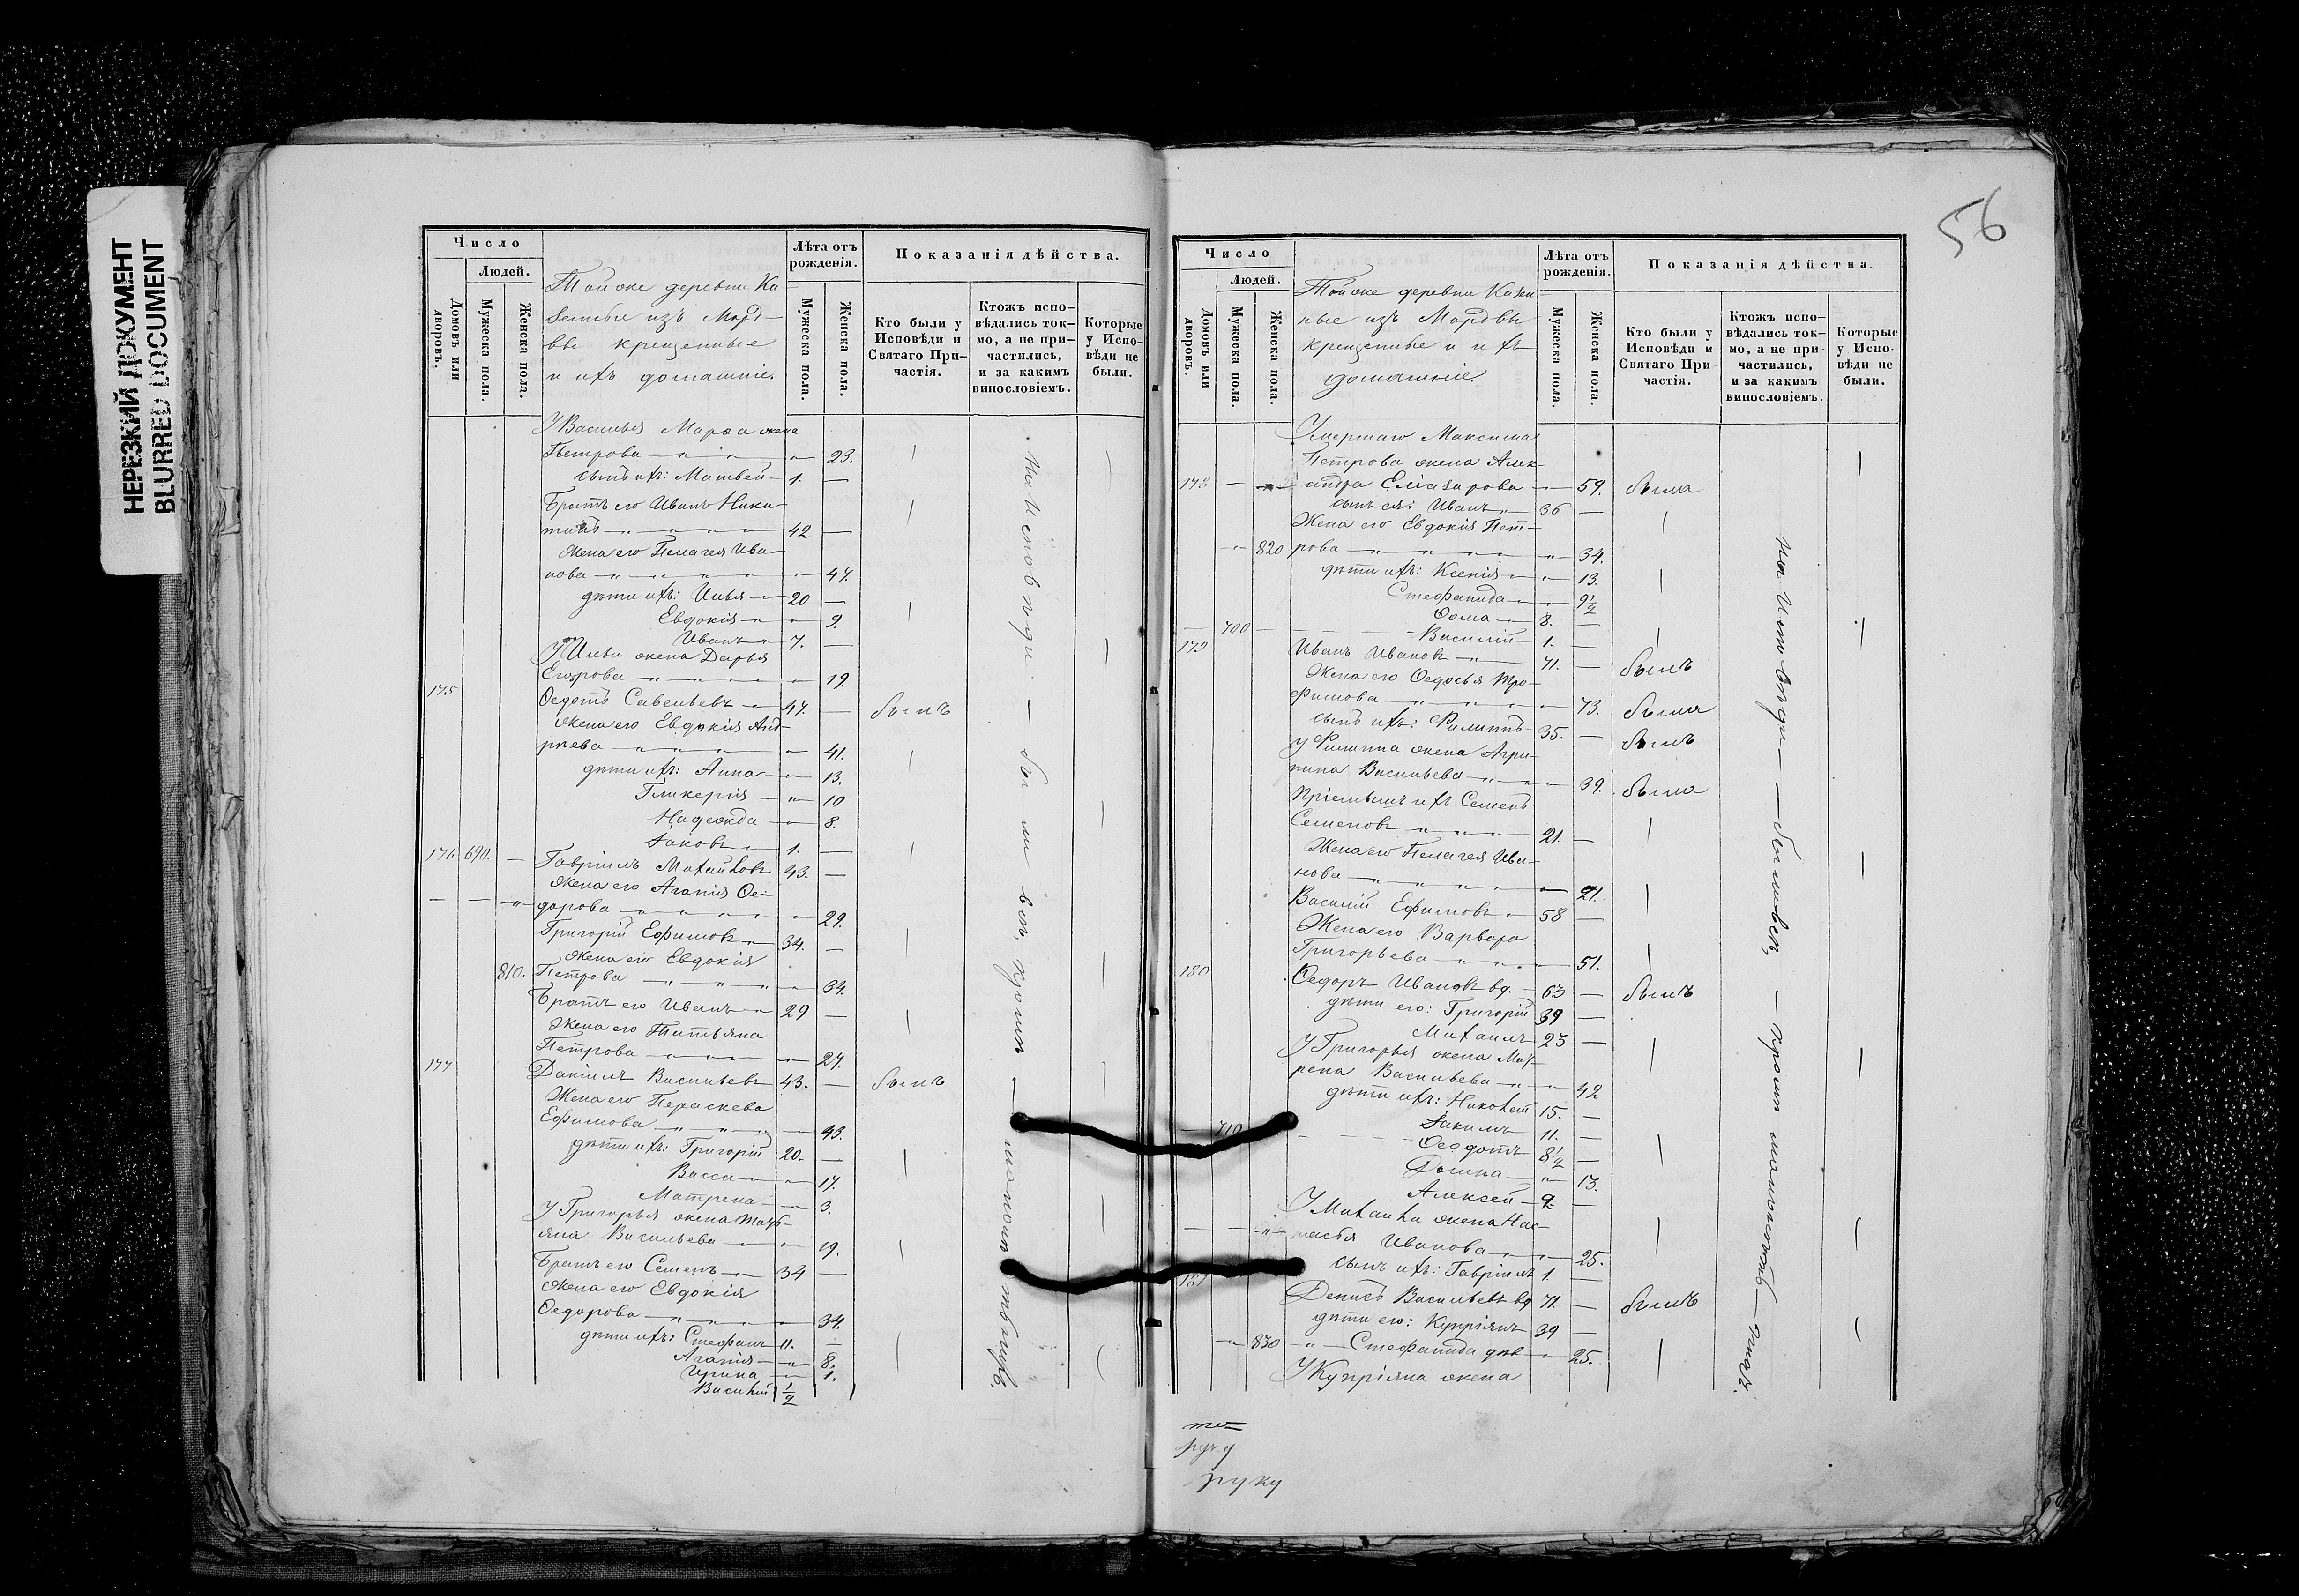 НЕРЕЗКИЙ ДОКУМЕНТ
BLURRED DOCUMENT
Число
Людей.
Домовъ или дворовъ.
Мужеска пола.
Женска пола.
Тойже деревни Ка-
зенные изъ Морд-
вы крещенные
и ихъ домашніе.
Лѣта отъ рожденія.
Мужеска пола.
Женска пола.
Показанія дѣйства.
Кто были у Исповѣди и Святаго При-частія.
Ктожъ испо-вѣдались ток-мо, а не при-частились, и за какимъ винословіемъ.
Которые у Испо-вѣди не были.
У Василья Марѳа жена
Петрова 23.
сынъ ихъ: Матвей 1.
Братъ его Иванъ Ники-
тинъ 42
Жена его Пелагея Ива-
нова 47.
дѣти ихъ: Илья 20
Евдокія 9.
Иванъ 7.
У Ильи жена Дарья
Егорова 19.
175 Ѳедотъ Савельевъ 47. былъ
Жена его Евдокія Анд-
рѣева 41.
дѣти ихъ: Анна 13.
Гликерія 10
Надежда 8.
Іаковъ 1.
176 690. Гавріилъ Михайловъ 43.
Жена его Агапія Ѳе-
дорова 29.
Григорій Ефимовъ 34.
Жена его Евдокія
810. Петрова 34.
Братъ его Иванъ 29
Жена его Татьяна
Петрова 27.
177 Даніилъ Васильевъ 43. былъ
Жена его Параскева
Ефимова 43.
дѣти ихъ: Григорій 20.
Васса 17.
Матрена 3.
У Григорья жена Тать-
яна Васильева 19.
Братъ его Семенъ 34
Жена его Евдокія
Ѳедорова 34.
дѣти ихъ: Стефанъ 11.
Агапія 8.
Ирина 1.
Василій 1/2
на Исповѣди — были всѣ, кромѣ — малолѣтнихъ
56
Число
Людей.
Домовъ или дворовъ.
Мужеска пола.
Женска пола.
Тойже деревни Казен-
ные изъ Мордвы
крещенные и ихъ
домашніе.
Лѣта отъ рожденія.
Мужеска пола.
Женска пола.
Показанія дѣйства.
Кто были у Исповѣди и Святаго При-частія.
Ктожъ испо-вѣдались ток-мо, а не при-частились, и за какимъ винословіемъ.
Которые у Испо-вѣди не были.
Умершаго Максима
Петрова жена Алек-
178 андра Еліазарова 59. была
сынъ ея: Иванъ 36
Жена его Евдокія Пет-
820 рова 34.
дѣти ихъ: Ксенія 13.
Стефанида 9 1/2
Ѳома 8.
700 Василій 1.
179 Иванъ Ивановъ 71. былъ
Жена его Ѳедосья Тро-
фимова 73. была
сынъ ихъ: Филиппъ 35. былъ
у Филиппа жена Агри-
пина Васильева 39. была
Пріемышъ ихъ Семенъ
Семеновъ 21.
Жена его Пелагея Ива-
нова 21.
Василій Ефимовъ 58
Жена его Варвара
Григорьева 51.
180 Ѳедоръ Ивановъ вд. 63 былъ
дѣти его: Григорій 39
Михаилъ 23
У Григорья жена Мат-
рена Васильева 42
дѣти ихъ: Николай 15.
710 Іакимъ 11.
Ѳедотъ 8 1/2
Домна 13.
Алексей 9.
У Михаила жена Нас-
тасья Иванова 25.
сынъ ихъ: Гавріилъ 1.
181 Денисъ Васильевъ вд 71. былъ
дѣти его: Купріянъ 39
830 Стефанида дѣв 25.
У Купріяна жена
на Исповѣди
руку
руку